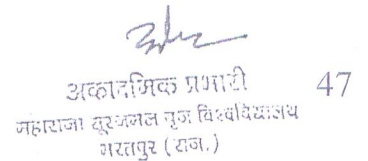 अकादमिक प्रभारी
47
महाराजा सूरजमल बृज विश्वविद्यालय
भरतपुर (राज.)